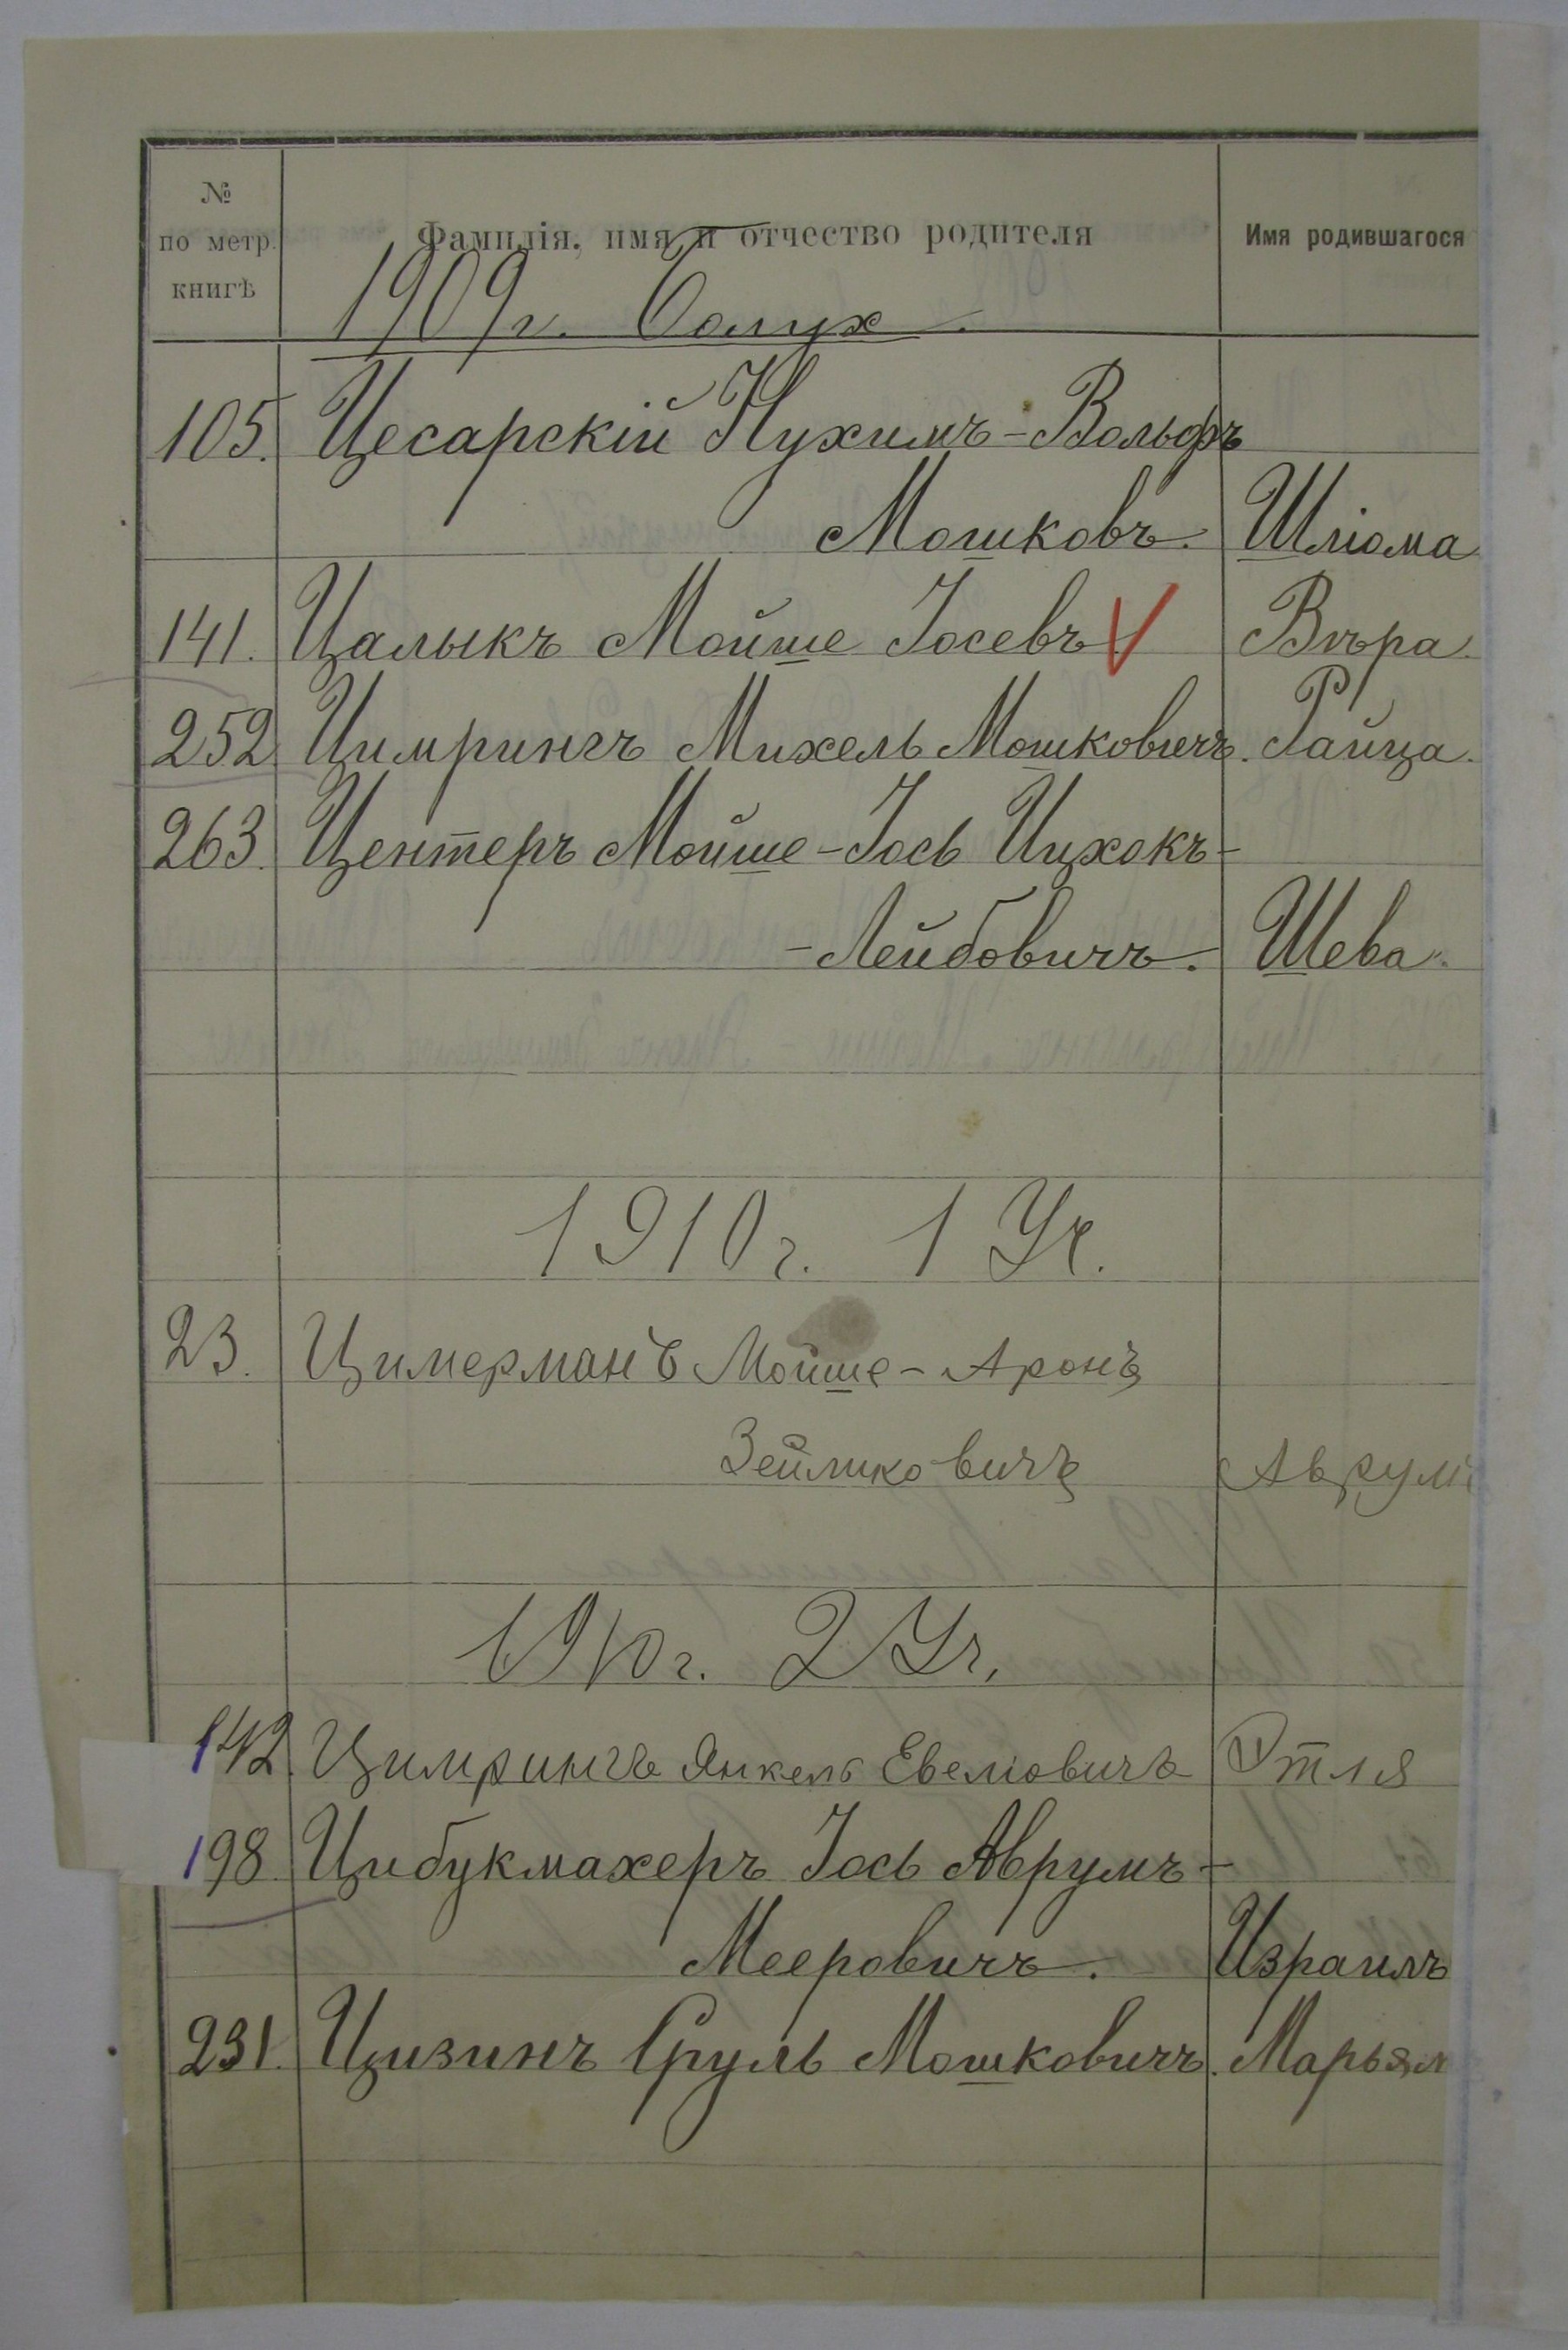 №
по метр.
книгѣ
Фамилія, имя и отчество родителя
Имя родившагося
1909 г. Солух.
105. Цесарскій Нухимъ-Вольфъ
Мошковъ. Шліома
141. Цалыкъ Мойше Іосевъ. Вѣра.
252 Цимрингъ Михель Мошковичъ. Райца.
263. Центеръ Мойше-Іось Ицхокъ-
-Лейбовичъ. Шева.
1910 г. 1 Уч.
23. Цимерманъ Мойше-Аронъ
Зейликовичъ Аврумъ
1910 г. 2 Уч.
142. Цимрингъ Янкель Евеліовичъ Этля
198 Цибукмахеръ Іось Аврумъ-
Мееровичъ. Израиль
231. Цизинъ Сруль Мошковичъ. Марьям